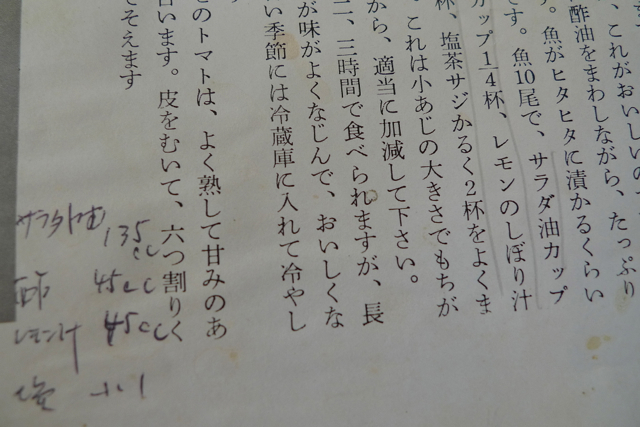 、これがおいしいの
酢油をまわしながら、たっぷり
。魚がヒタヒタに漬かるくらい
です。魚10尾で、サラダ油カップ
カップ1/4杯、レモンのしぼり汁
杯、塩茶サジかるく2杯をよくま
。これは小あじの大きさでもちが
から、適当に加減して下さい。
二、三時間で食べられますが、長
が味がよくなじんで、おいしくな
い季節には冷蔵庫に入れて冷やし
のトマトは、よく熟して甘みのあ
言います。皮をむいて、六つ割りく
てそえます
サラダ油 135cc
酢 45cc
レモン汁 45cc
塩 小1